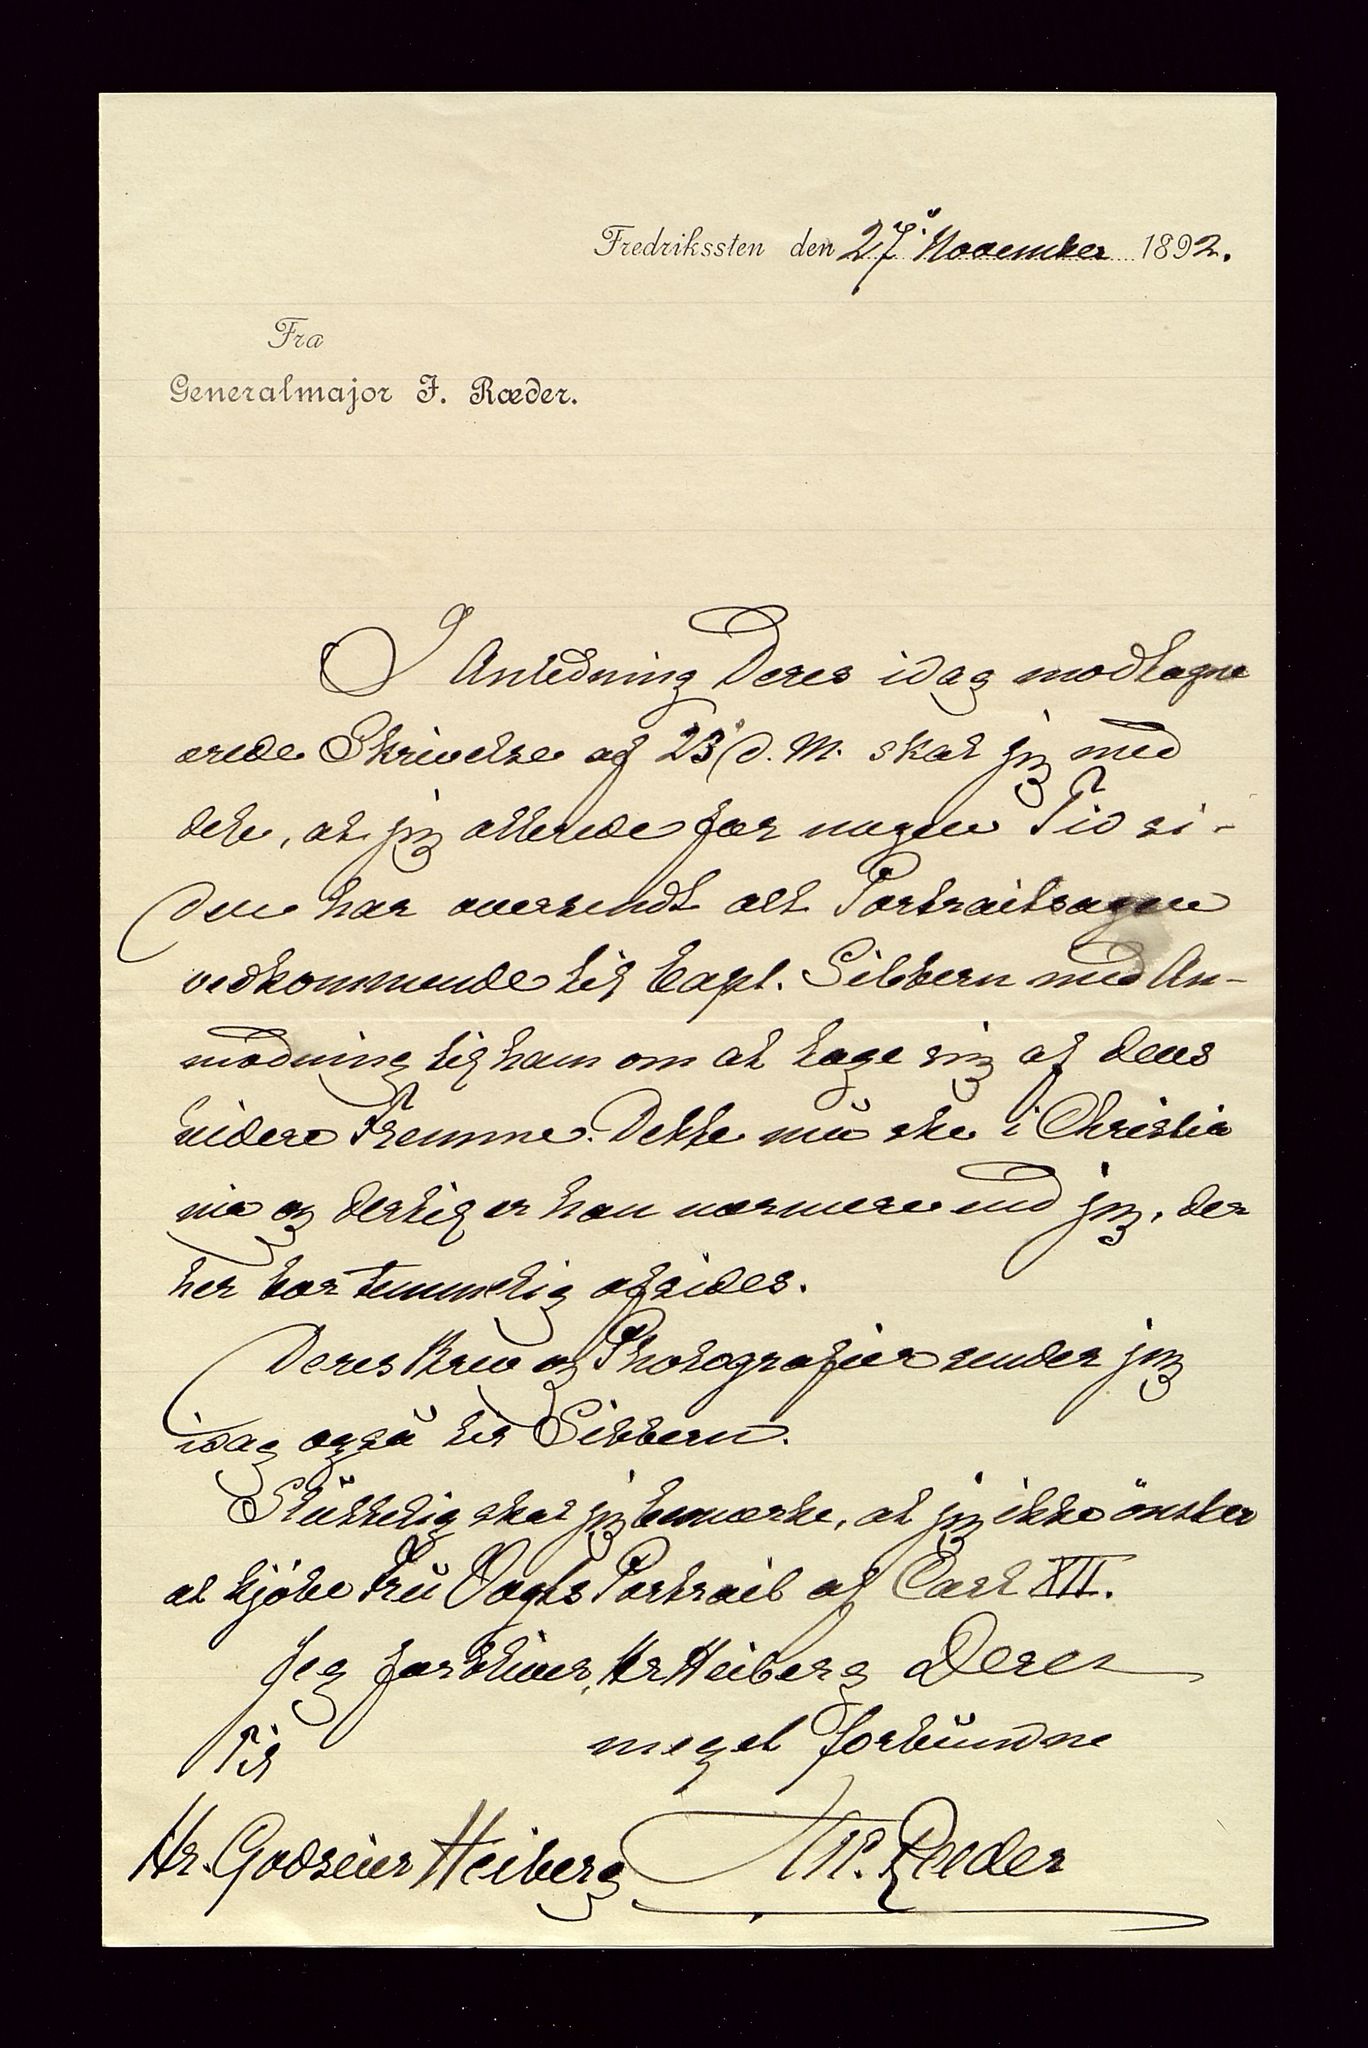 Fredrikssten den 27' November 1892.
Fra
Generalmajor J. Ræder.
I Anledning Deres idag modtagne
ærede Skrivelse af 23' d. M. skal jeg med
dele, at jeg allerede for nogen Tid si-
den har oversendt alt Portraitsagen
vedkommende til Capt. Sibbern med An-
modning til ham om at tage sig af dens
videre Fremme. Dette må ske i Christia
nia og dertil er han nærmere end jeg, der
her bor temmelig afsides.
Deres Brev og Photografier sender jeg
idag også til Sibbern.
Sluttelig skal jeg bemærke, at jeg ikke önsker
at kjöbe Fru Vogts Portrait af Carl XII.
Jeg forbliver, Hr Heiberg Deres
Til meget forbundne
Hr. Godseier Heiberg Ræder